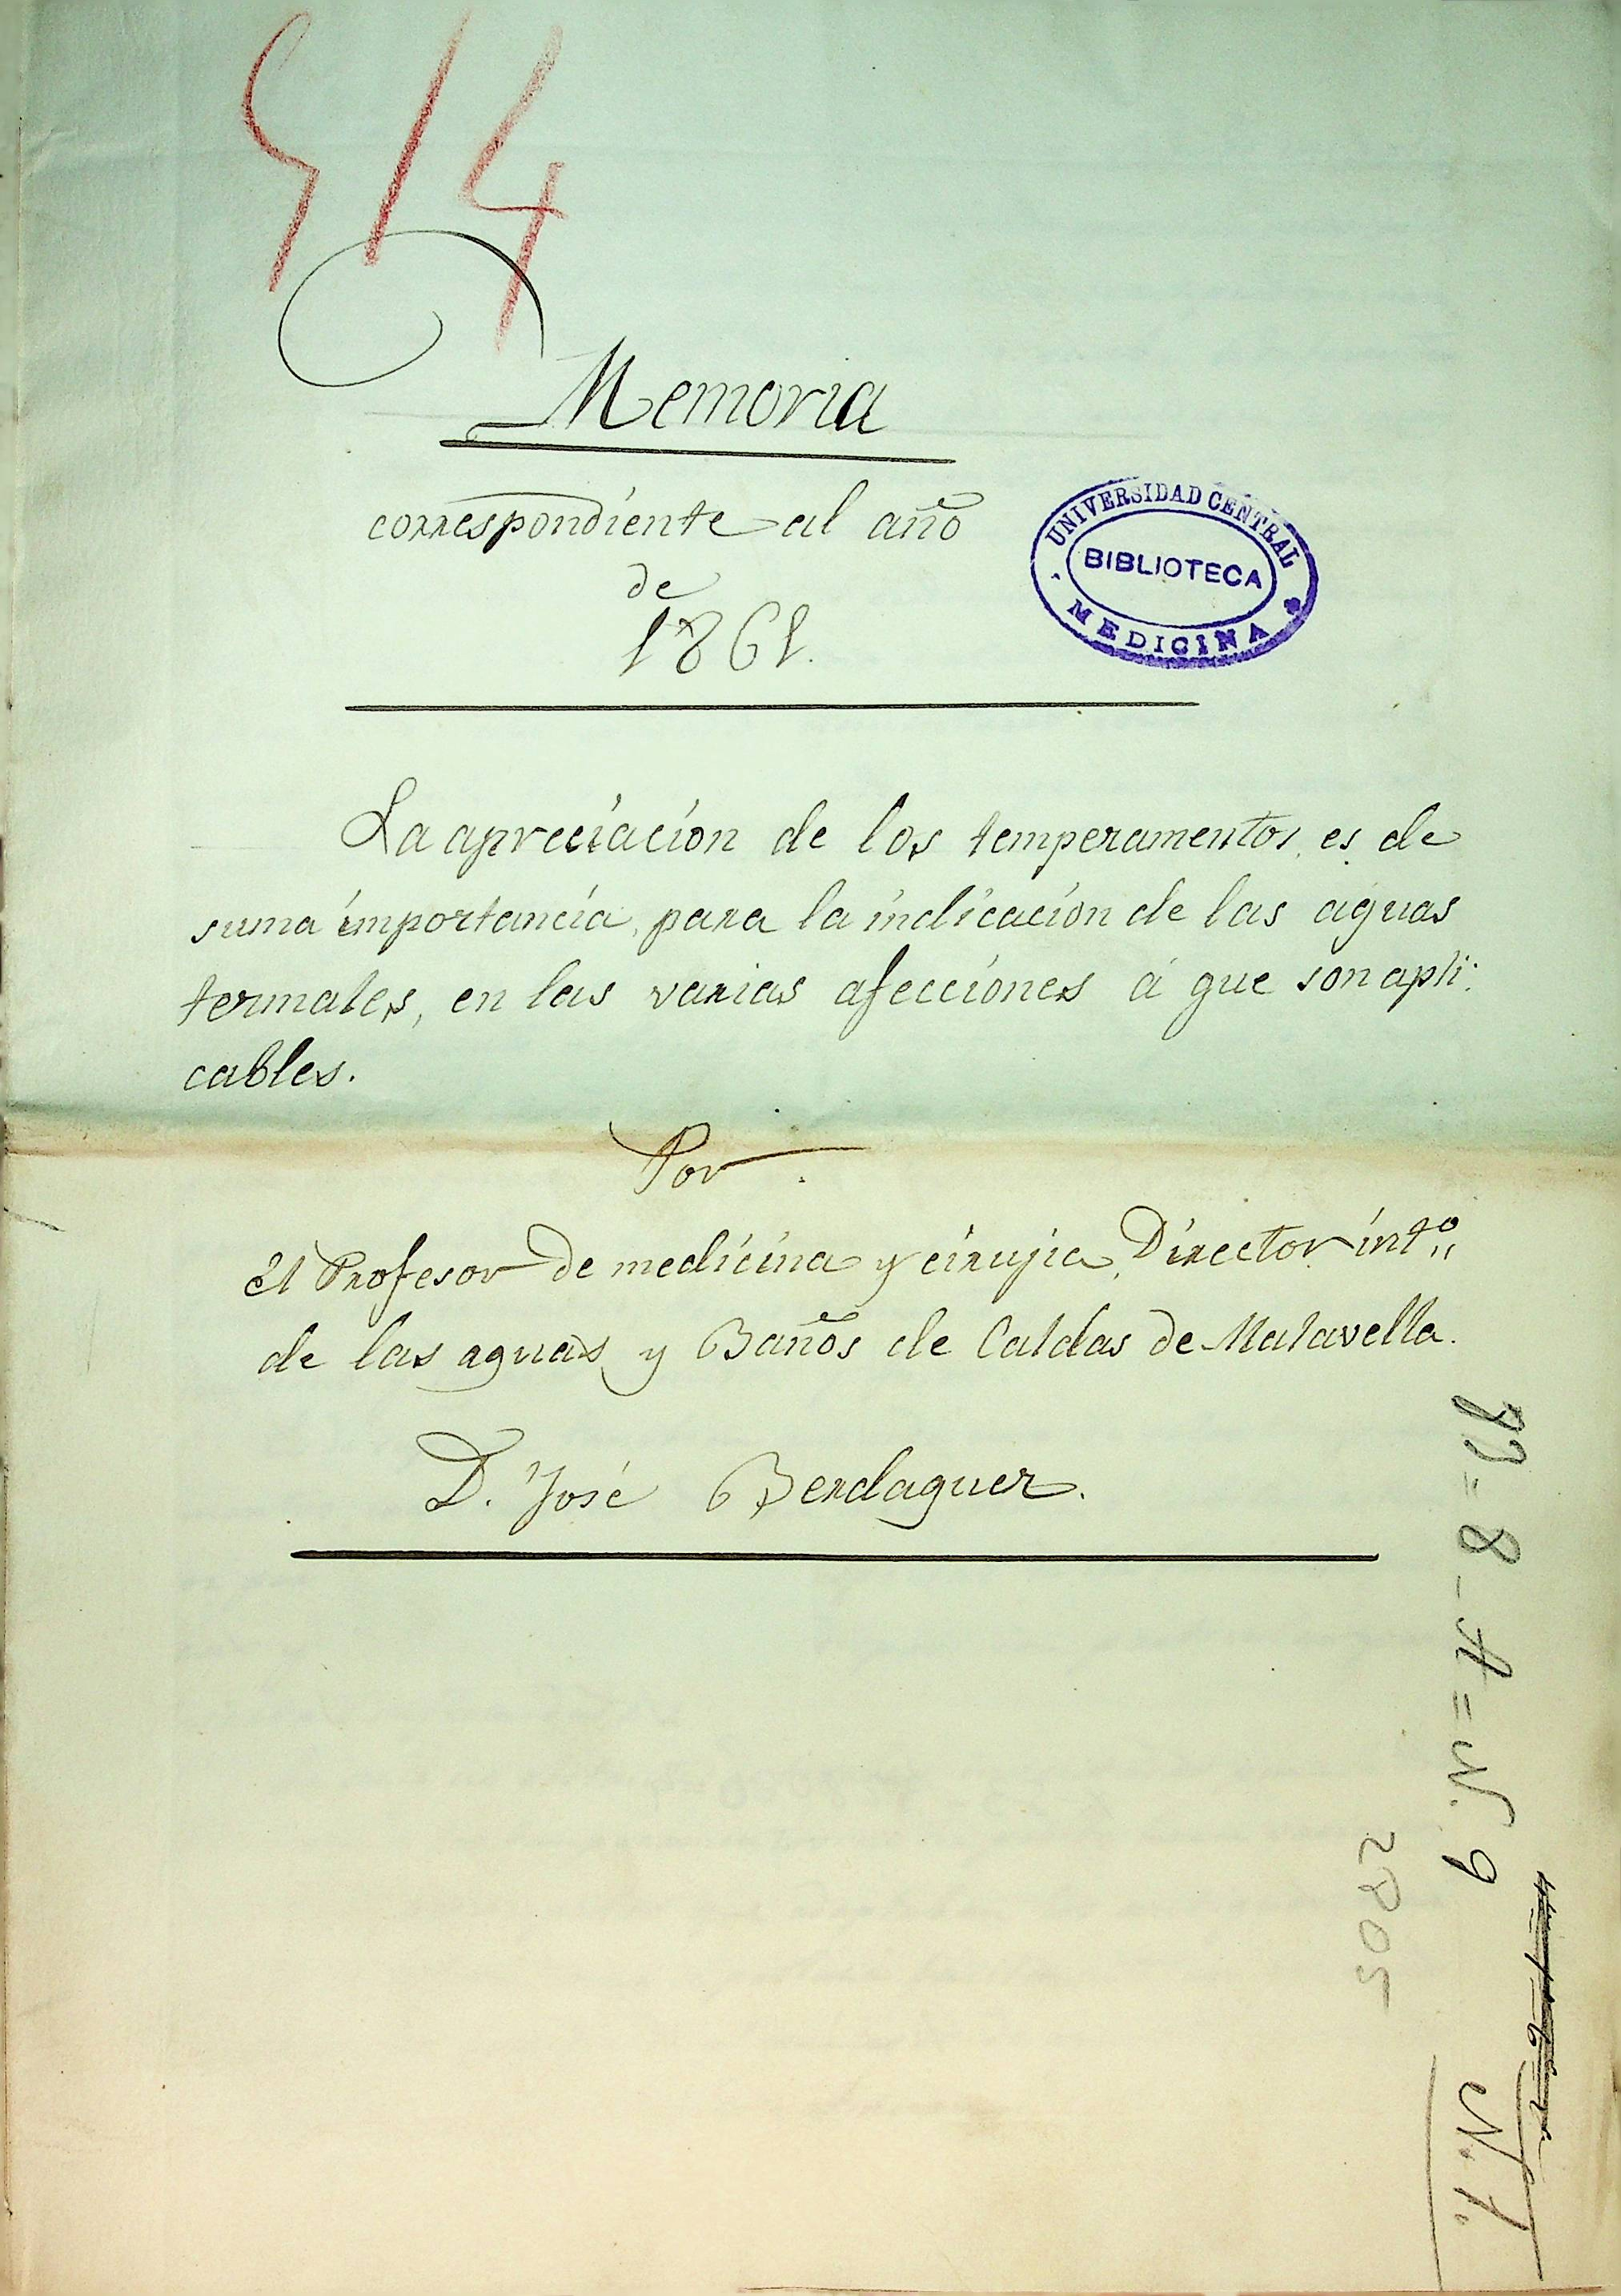 514
Memoria
correspondiente al año
de
1861.
UNIVERSIDAD CENTRAL
BIBLIOTECA
MEDICINA
La apreciacion de los temperamentos, es de
suma importancia, para la indicacion de las aguas
termales, en las varias afecciones á que son apli-
cables.
Por
El Profesor de medicina y cirujia, Director intº
de las aguas y Baños de Caldas de Malavella.
D. José Berdaguer.
=8-A=N. 9
N. 1.